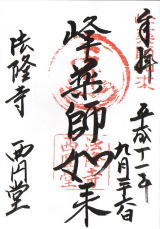 奉拝
平成十一年
九月二十六日
峰薬師如来
法隆寺
西円堂